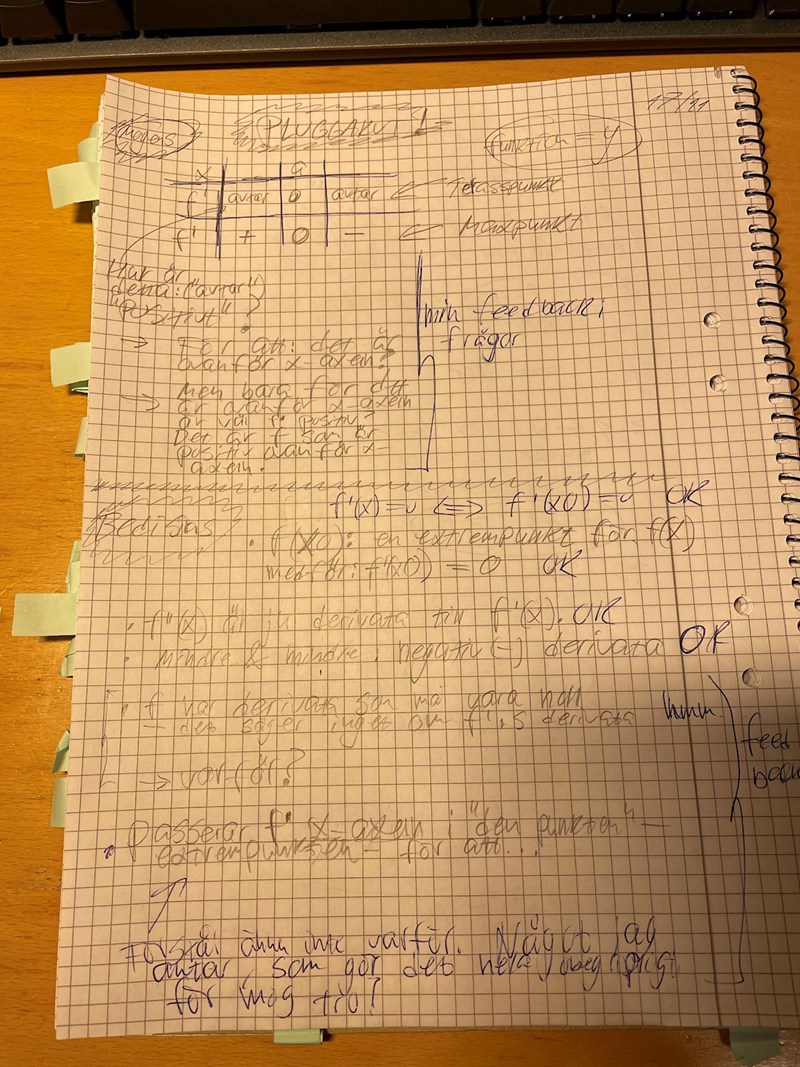 PLUGGAKUT 1
17/11
funktion = y
x a
f' avtar 0 avtar ← Terasspunkt
f' + 0 − ← Maxpunkt
Hur är
detta: ("avtar")
"POSitivt" ?
min feedback i
frågor
→ För att: det är
ovanför x-axeln?
→ Men bara för att
är ovanför x-axeln
är väl f' positiv?
Det är f som är
positiv ovanför x-
axeln.
f'(x)=0 ⇔ f'(x0)=0 OK
• f(x0): en extrempunkt för f(x)
medför: f'(x0) = 0 OK
• f"(x) är ju derivata till f'(x). OK
• mindre & mindre: negativ (-) derivata OK
• f har derivata som må vara noll
− det säger inget om f':s derivata hmm.
feed
back
→ varför?
• Passerar f' x-axeln i "den punkten" −
extrempunkten − för att...
Förstår ännu inte varför. Något jag
antar, som gör det hela obegripligt
för mig tro?